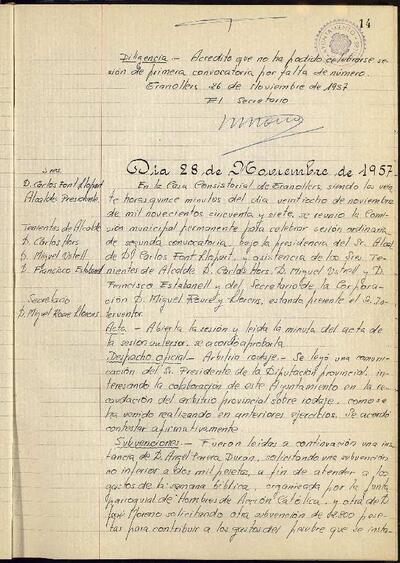 14
Diligencia.- Acredito que no ha podido celebrarse se-
sión de primera convocatoria por falta de número.
Granollers 26 de Noviembre de 1957
El Secretario
Día 28 de Noviembre de 1957
Sres.
D. Carlos Font Llopart
Alcalde Presidente
Tenientes de Alcalde
D. Carlos Hors
D. Miguel Vstrell
D. Francisco Estabanell
Secretario
D. Miguel Roure Llorens
En la Casa Consistorial de Granollers, siendo las vein-
te horas quince minutos del día veintiocho de noviembre
de mil novecientos cincuenta y siete, se reunió la Comi-
sión municipal permanente para celebrar sesión ordinaria
de segunda convocatoria, bajo la presidencia del Sr. Alcal-
de D. Carlos Font Llopart, y asistencia de los Sres. Te-
nientes de Alcalde D. Carlos Hors, D. Miguel Vstrell y D.
Francisco Estabanell y del Secretario de la Corpora-
ción D. Miguel Roure y Llorens, estando presente el Sr. In-
terventor.
Acta.- Abierta la sesión y leída la minuta del acta de
la sesión anterior, se acordó aprobarla.
Despacho oficial.- Arbitrio rodaje.- Se leyó una comuni-
cación del Sr. Presidente de la Diputación provincial, in-
teresando la colaboración de este Ayuntamiento en la re-
caudación del arbitrio provincial sobre rodaje, como se
ha venido realizando en anteriores ejercicios. Se acordó
contestar afirmativamente.
Subvenciones.- Fueron leídas a continuación una ins-
tancia de D. Angel Durán, solicitando una subvención
no inferior a dos mil pesetas, a fin de atender a los
gastos de la semana bíblica, organizada por la Junta
parroquial de Hombres de Acción Católica, y otra de D.
José Moreno solicitando otra subvención de pese-
tas para contribuir a los gastos del pesebre que se insta-